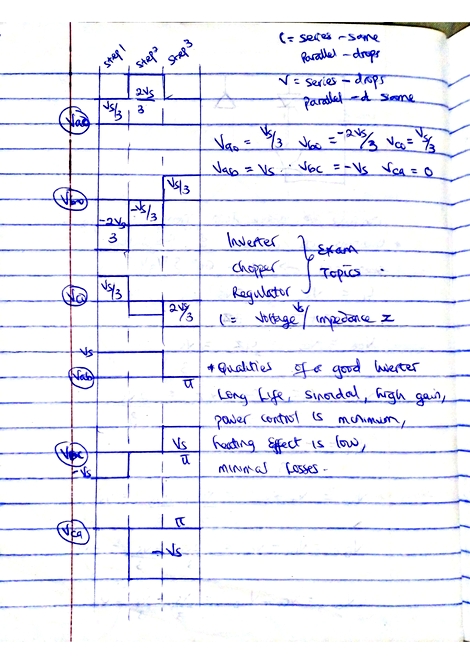 step 1 step 2 step 3
I = series - same
Parallel - drops
V = series - drops
parallel - d same
Vs/3
2Vs/3
Vao
Vao = Vs/3 Vbo = -2Vs/3 Vco = Vs/3
Vab = Vs Vbc = -Vs Vca = 0
Vs/3
Vbo
-Vs/3
-2Vs/3
Inverter
Chopper
Regulator
Exam
Topics
Vs/3
2Vs/3
I = Voltage Vs / impedance Z
Vs
Vab
π
* Qualities of a good Inverter
Long Life, sinoidal, high gain,
power control is minimum,
heating effect is low,
minimal losses.
Vs
Vbc
π
-Vs
π
Vca
-Vs